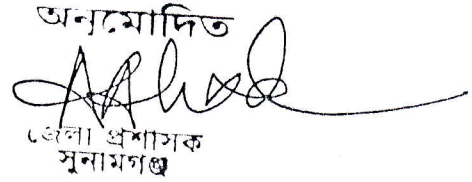 অনুমোদিত
জেলা প্রশাসক
সুনামগঞ্জ